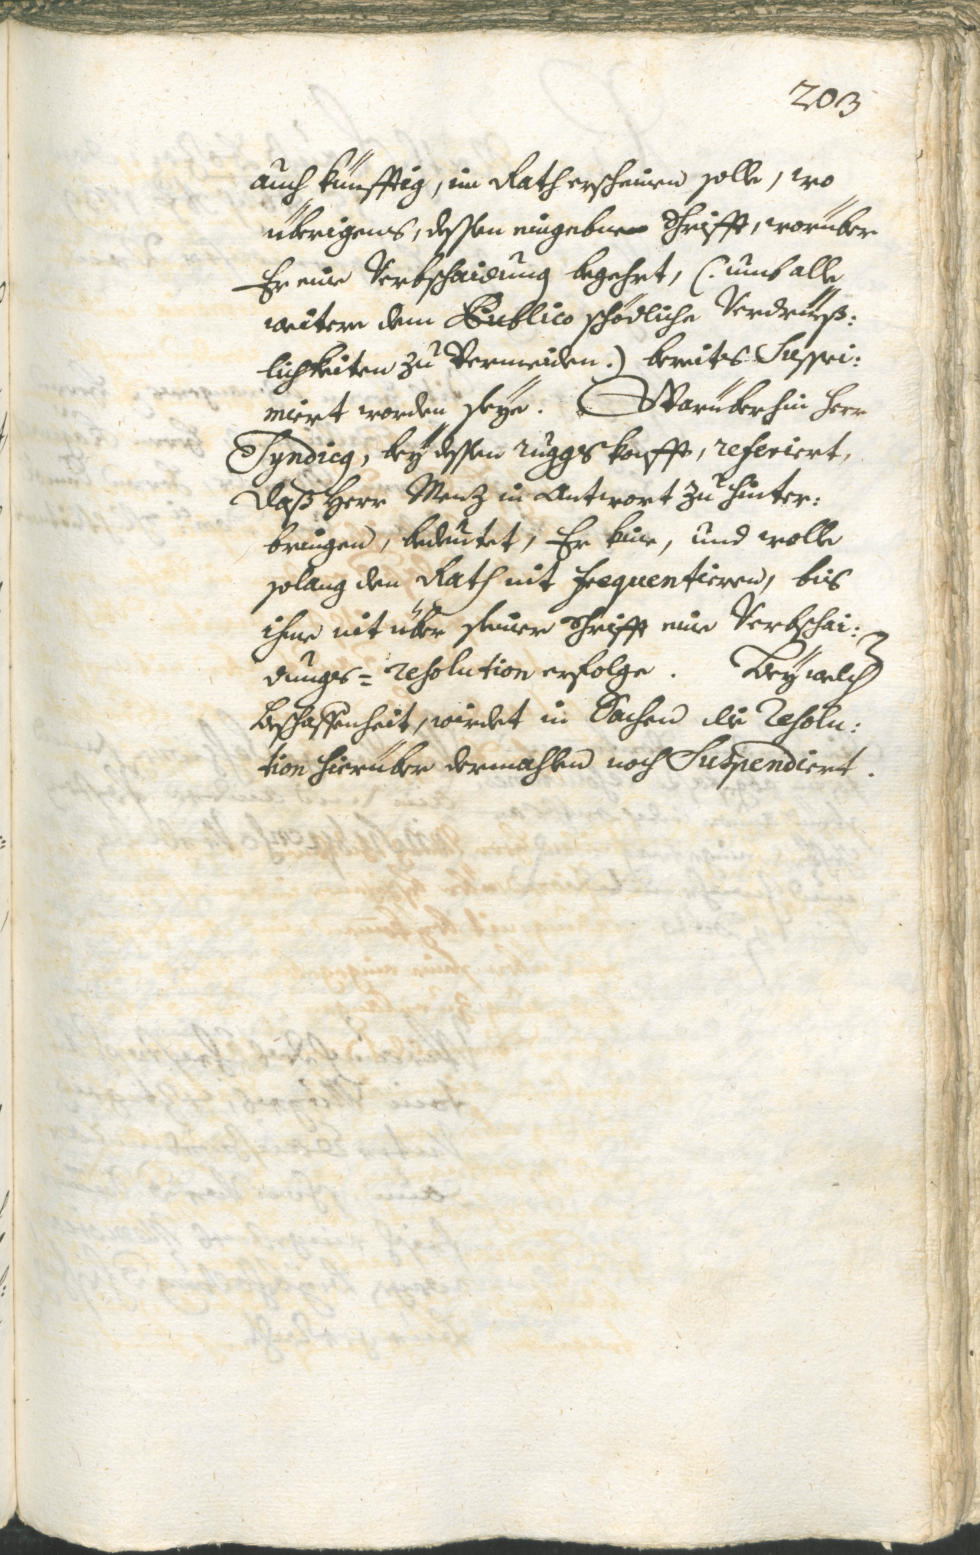 203
auch künfftig, im Rath erscheinen solle, wo
übrigens, dessen eingebne Schrifft, worüber
Er eine Verbschaidung begehrt, (: umb alle
weitere dem Publico schödliche Verdrüeß:
lichkeiten zu Vermeiden :) bereits Suppri:
miert worden seÿe. Worüberhin Herr
Syndicq, beÿ dessen ruggskonfft, referiert,
daß Herr Menz in Antwort zu hinter:
bringen, bedeutet, Er kine, und wolle
solang den Rath nit frequentieren, bis
ihme nit über seiner Schrifft eine Verbschai:
dungs= resolution erfolge. Beÿ welch
Beschaffenheit, wirdet in Sachen die Resolu:
tion hierüber dermahlen noch Suspendiert.